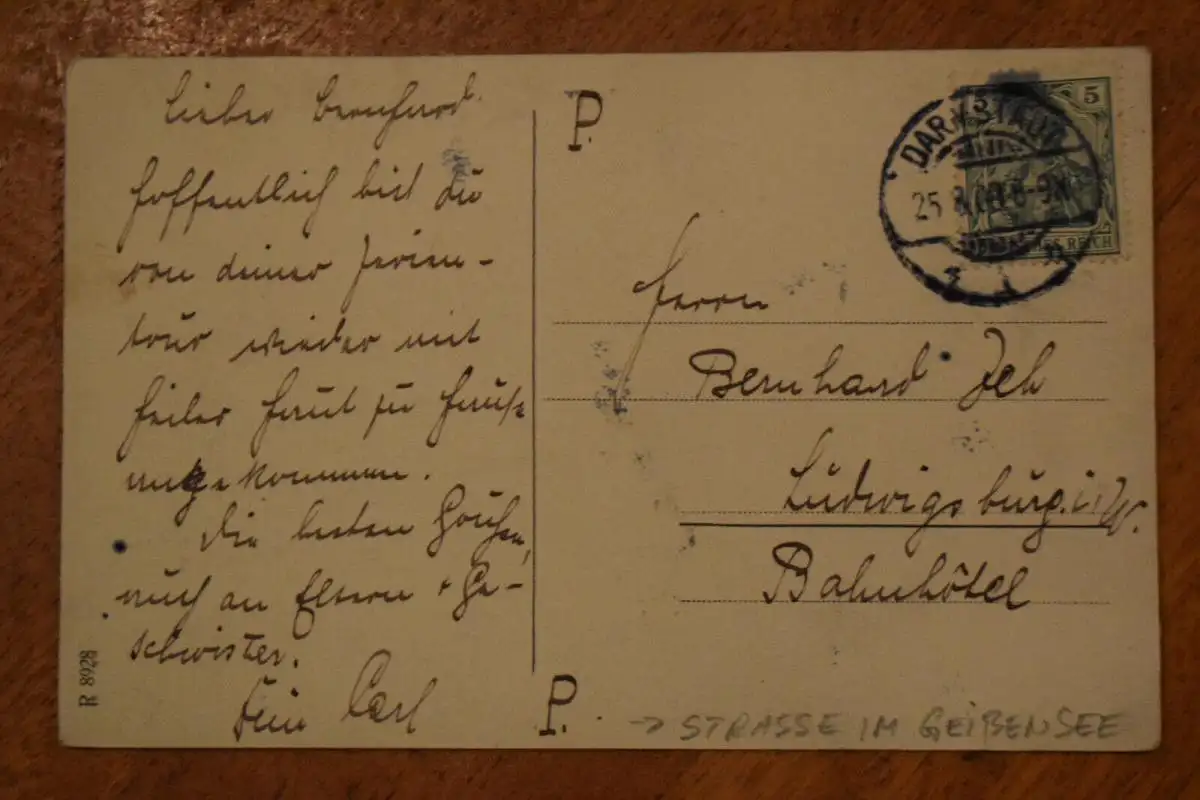 Lieber Bernhard.
Hoffentlich bist du
von deiner Ferien-
tour wieder mit
heiler Haut zu Hause
angekommen.
Die besten Grüße,
auch an Eltern + Ge-
schwister.
Dein Carl
P.
P.
8268 R
5
DARMSTADT
25 8-9N
REICH
Herrn
Bernhard
Ludwigsburg. i. W.
Bahnhôtel
→ STRASSE IM GEIßENSEE